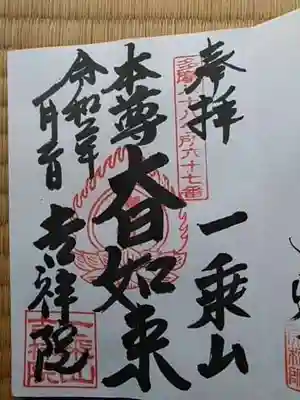 奉拝
一乗山
多摩八十八所六十七番
本尊
大日如来
吉祥院
令和二年
一月二日